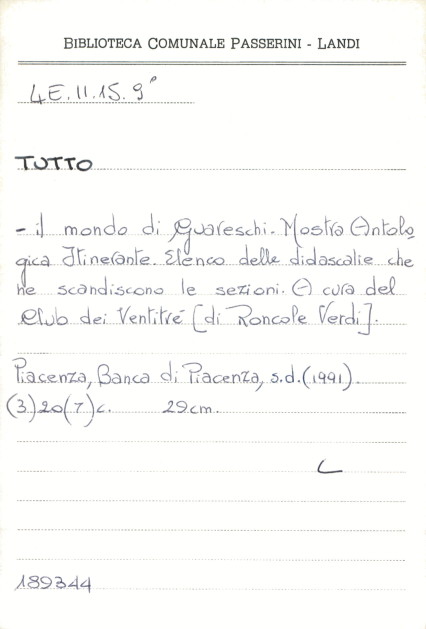 BIBLIOTECA COMUNALE PASSERINI - LANDI
4E.II.15.9°
TUTTO
- il mondo di Guareschi. Mostra Antolo
gica Itinerante. Elenco delle didascalie che
ne scandiscono le sezioni. A cura del
Club dei Ventitré [di Roncole Verdi].
Piacenza, Banca di Piacenza, s.d. (1991).
(3)20(7)c. 29cm.
L
189344